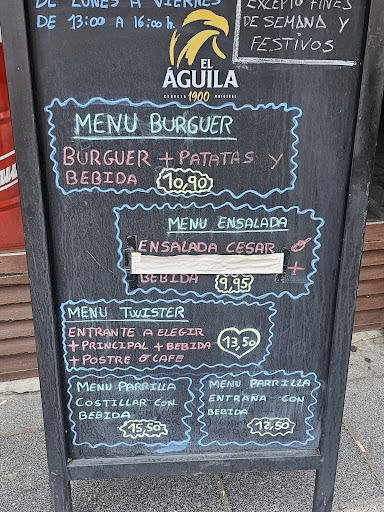 DE LUNES A VIERNES
DE 13:00 A 16:00 h.
EXCEPTO FINES
DE SEMANA Y
FESTIVOS
EL
ÁGUILA
CERVEZA 1900 ORIGINAL
MENU BURGUER
BURGUER + PATATAS Y
BEBIDA 10,90
MENU ENSALADA
ENSALADA CESAR O
BEBIDA 9,95 +
MENU TWISTER
ENTRANTE A ELEGIR
+ PRINCIPAL + BEBIDA
+ POSTRE O CAFE
13,50
MENU PARRILLA
COSTILLAR CON
BEBIDA
15,50
MENU PARRILLA
ENTRAÑA CON
BEBIDA
12,50